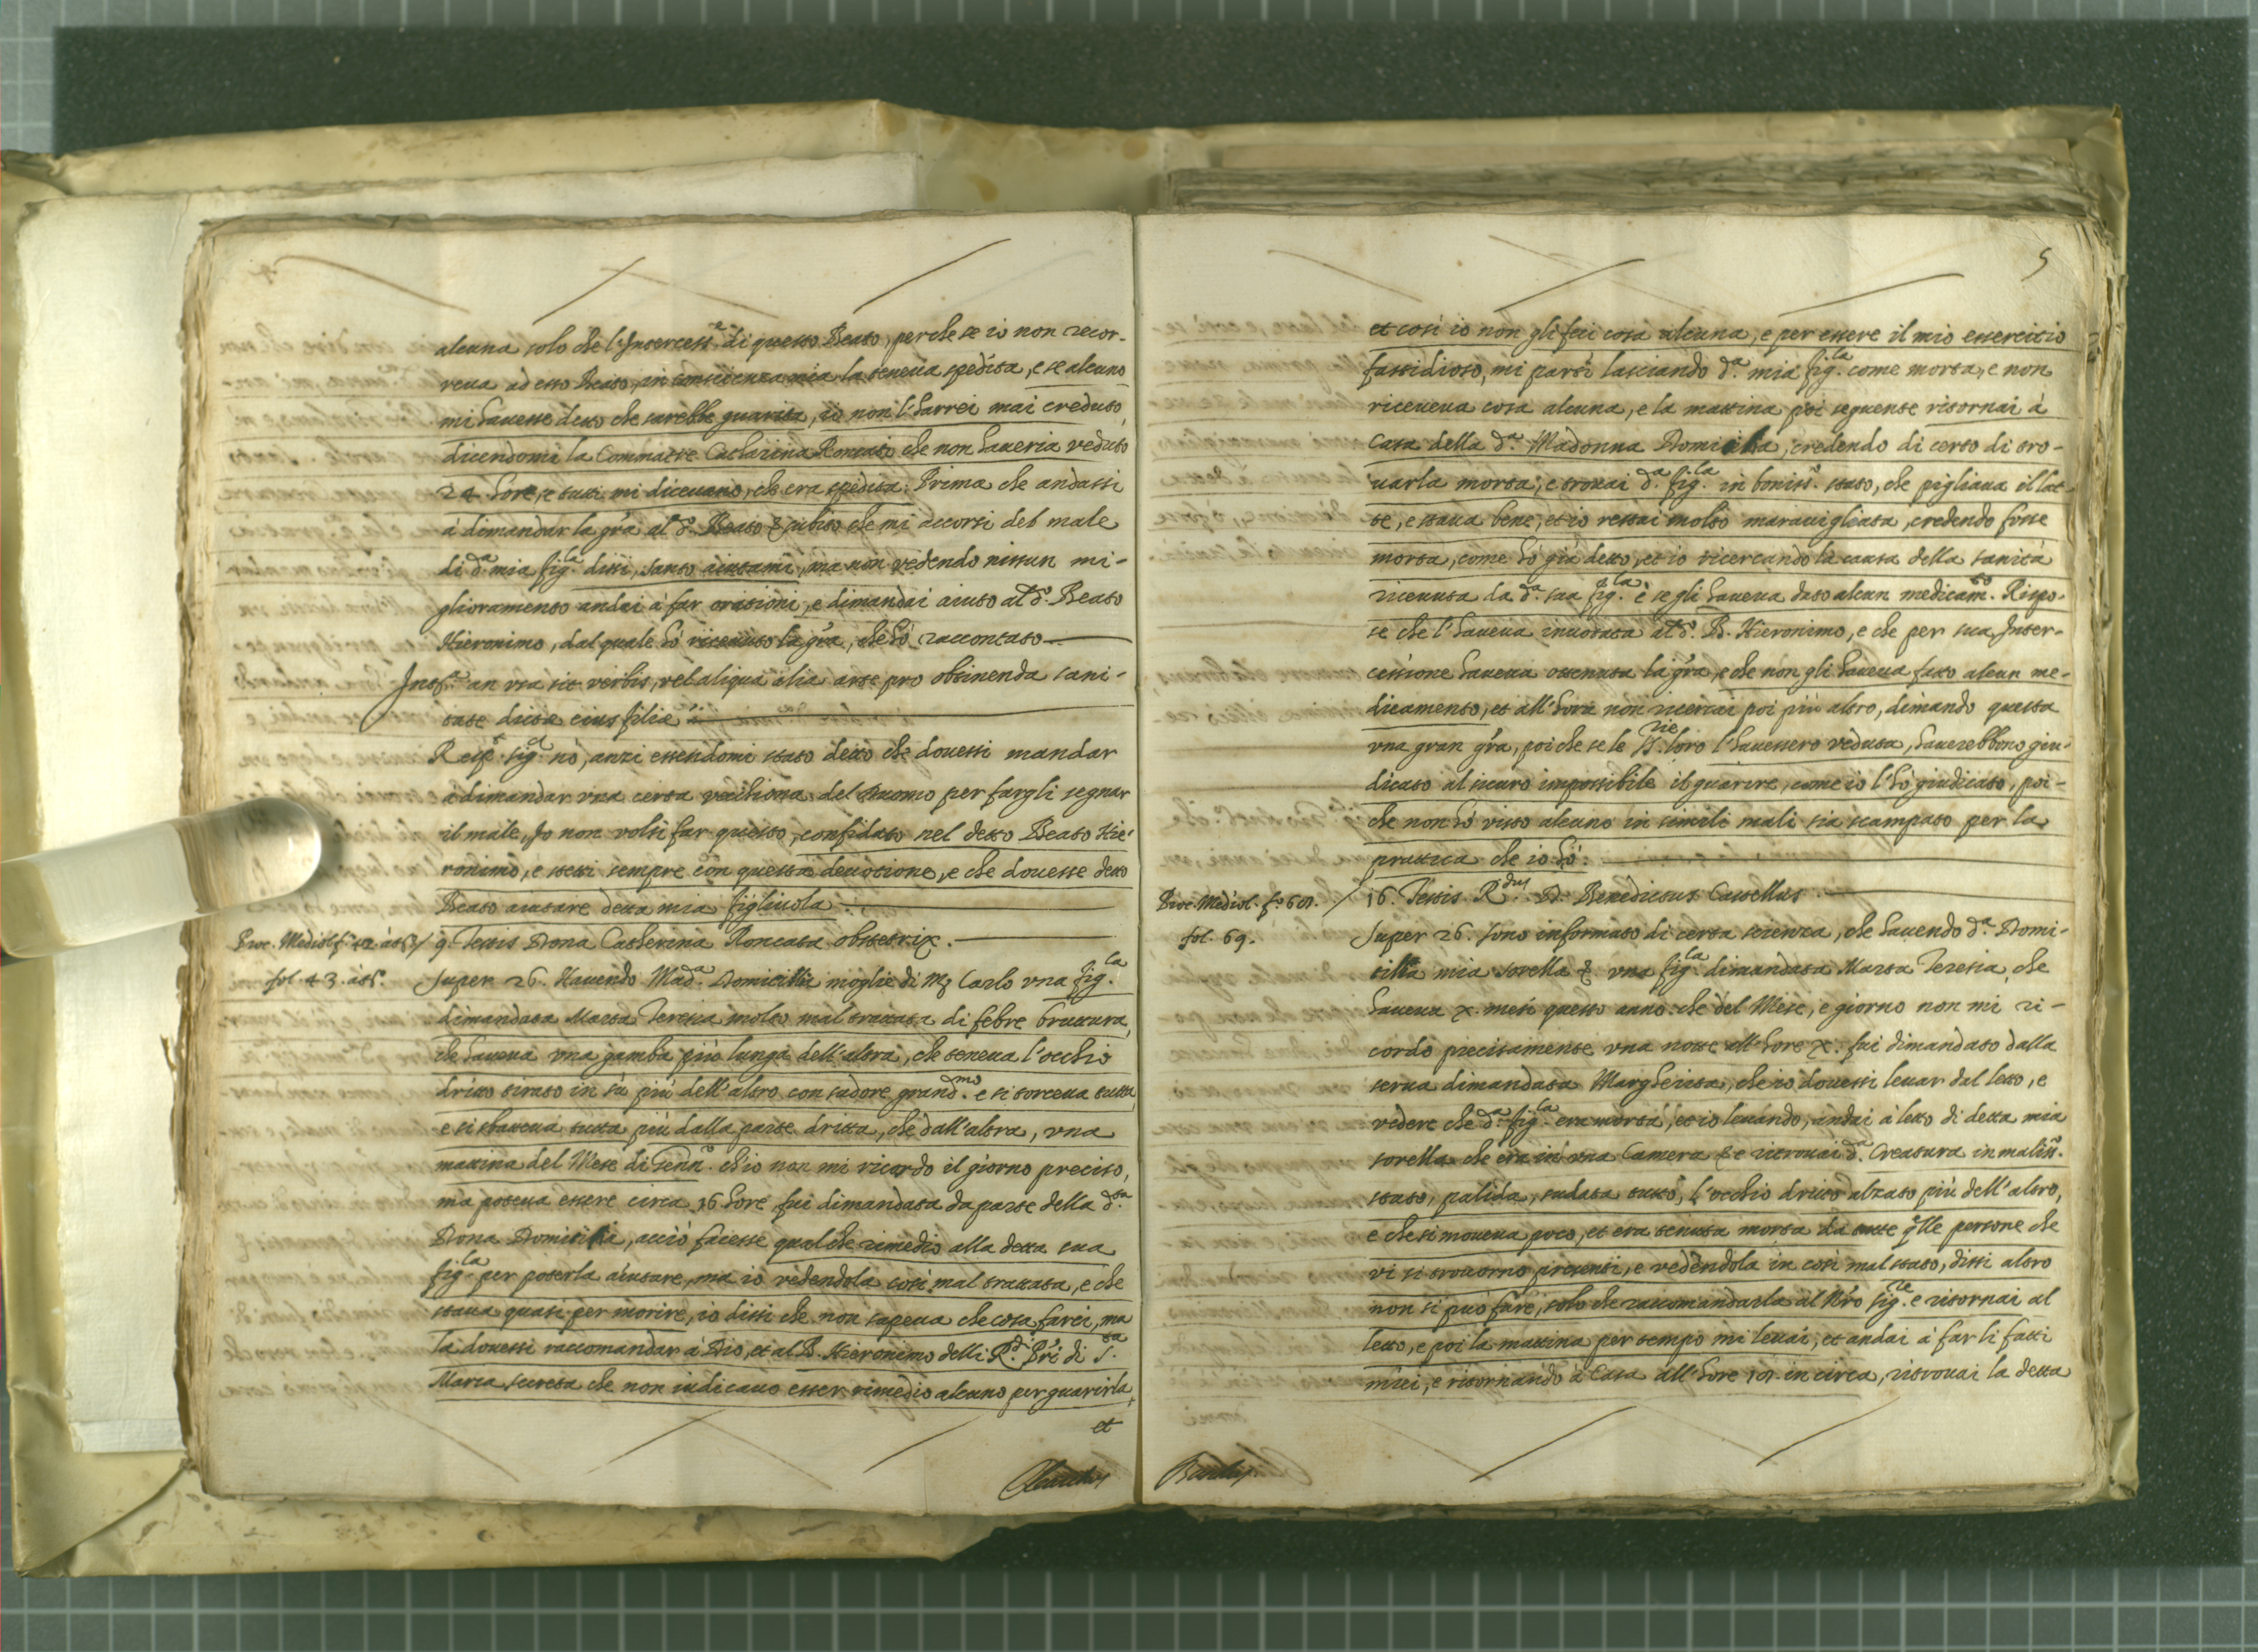 alcuna solo che l'Intercess.e di questo Beato, perche se io non recor-
reua ad esso Beato, in conscienza mia la teneua spedita, e se alcuno
mi hauesse detto che sarebbe guarita, io non l'harrei mai creduto,
dicendomi la Commatre Catharina Roncate che non haueria veduto
24 hore, e tutti mi diceuano, che era spedita. Prima che andassi
à dimandar la gr̃a al d.o Beato & subito che mi accorsi del male
di d.a mia fig.la dissi, santo aiutami, ma non vedendo nissun mi-
glioramento andai à far orationi, e dimandai aiuto al d.o Beato
Hieronimo, dal quale hò riceuuto la gr̃a, che hò raccontato
Int.a an vsa sit verbis, vel aliqua alia arte pro obtinenda sani-
tate dictæ eius filiæ
Resp.t sig.r nò, anzi essendomi stato detto che douessi mandar
à dimandar vna certa vecchiona del Duomo per fargli segnar
il male, Io non volsi far questo, confidato nel detto Beato Hie-
ronimo, e stetti sempre con questa deuotione, e che douesse detto
Beato aiutare detta mia figliuola
Proc. Mediol. f.o 42. àt.o / 9. Testis Dona Catherina Roncata obstetrix.
fol. 43. àt.o Super 26. Hauendo Mad.a Domicilla moglie di M. Carlo vna fig.la
dimandata Marta Teresia molto mal trattata di febre bruttura,
che haueua vna gamba più lunga dell'altra, che teneua l'occhio
dritto tirato in sù più dell'altro con sudore grand.mo e si torceua tutta,
e si sbatteua tutta più dalla parte dritta, che dall'altra, vna
mattina del Mese di Genn.o ch'io non mi ricordo il giorno preciso,
ma poteua essere circa 16 hore fui dimandata da parte della d.ta
Dona Domicilla, acciò facesse qualche rimedio alla detta sua
fig.la per poterla aiutare, ma io vedendola così mal trattata, e che
staua quasi per morire, io dissi che non sapeua che cosa farci, ma
la douessi raccomandar à Dio, et al B. Hieronimo delli R.di Pr̃i di S.ta
Maria Secreta che non iudicauo esser rimedio alcuno per guarirla,
et
5
et così io non gli feci cosa alcuna, e per essere il mio essercitio
fastidioso, mi partì lasciando d.a mia fig.la come morta, e non
riceueua cosa alcuna, e la mattina poi seguente ritornai à
Casa della d.a Madonna Domicilla, credendo di certo di tro-
uarla morta, e trouai d.a fig.la in boniss.o stato, che pigliaua il lat-
te, e staua bene, et io restai molto marauigliata, credendo fosse
morta, come hò già detto, et io ricercando la causa della sanità
riceuuta da d.a sua fig.la e se gli haueua dato alcun medicam.to Rispo-
se che l'haueua inuotata al d.o B. Hieronimo, e che per sua Inter-
cessione haueua ottenuta la gr̃a, e che non gli haueua fatto alcun me-
dicamento, et all'hora non ricercai poi più altro, dimando questa
vna gran gr̃a, poi che se le S.rie loro l'hauessero veduta, hauerebbono giu-
dicato al sicuro impossibile il guarire, come io l'hò giudicato, poi-
che non hò visto alcuno in simili mali sia scampato per la
prattica che io hò.
Proc. Mediol. f.o 67. / 16. Testis R.dus D. Benedictus Castellus
fol. 69. Super 26. sono informato di certa scienza, che hauendo d.a Domi-
cilla mia sorella & vna fig.la dimandata Marta Teresia, che
haueua x. mesi questo anno che del Mese, e giorno non mi ri-
cordo precisamente vna notte all'hore x. fui dimandato dalla
serua dimandata Margherita, che io douessi leuar dal letto, e
vedere che d.a fig.la era morta, et io leuando, andai à letto di detta mia
sorella che era in vna Camera & e ritrouai d.a Creatura in maliss.o
stato, palida, sudata tutta, l'occhio dritto alzato più dell'altro,
e che si moueua poco, et era tenuta morta da tutte q̃lle persone che
vi si trouorno presenti, e vedendola in così mal stato, dissi altro
non si può fare, solo che raccomandarla al Nr̃o Sig.re e ritornai al
letto, e poi la mattina per tempo mi leuai, et andai à far li fatti
miei, e ritornando à Casa all'hore in circa, ritrouai la detta